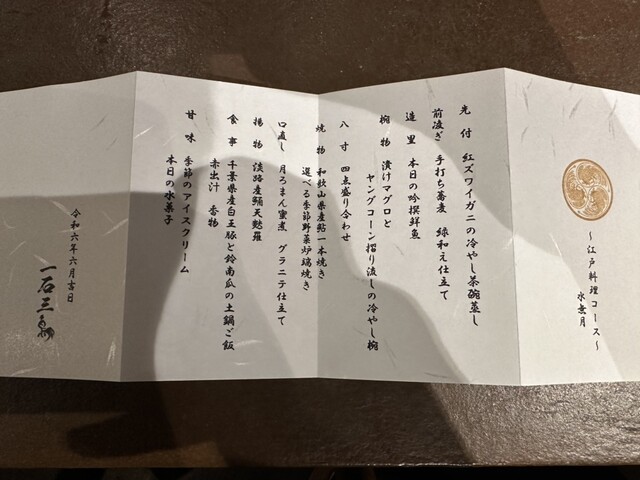 ～江戸料理コース～
水無月
先付 紅ズワイガニの冷やし茶碗蒸し
前凌ぎ 手打ち蕎麦 緑和え仕立て
造里 本日の吟撰鮮魚
椀物 漬けマグロと
ヤングコーン摺り流しの冷やし椀
八寸 四点盛り合わせ
焼物 和歌山県産鮎一本焼き
選べる季節野菜炉端焼き
口直し 月ろまん蜜煮 グラニテ仕立て
揚物 淡路産鱧天麩羅
食事 千葉県産白王豚と鈴南瓜の土鍋ご飯
赤出汁 香物
甘味 季節のアイスクリーム
本日の水菓子
令和六年六月吉日
一石三鳥